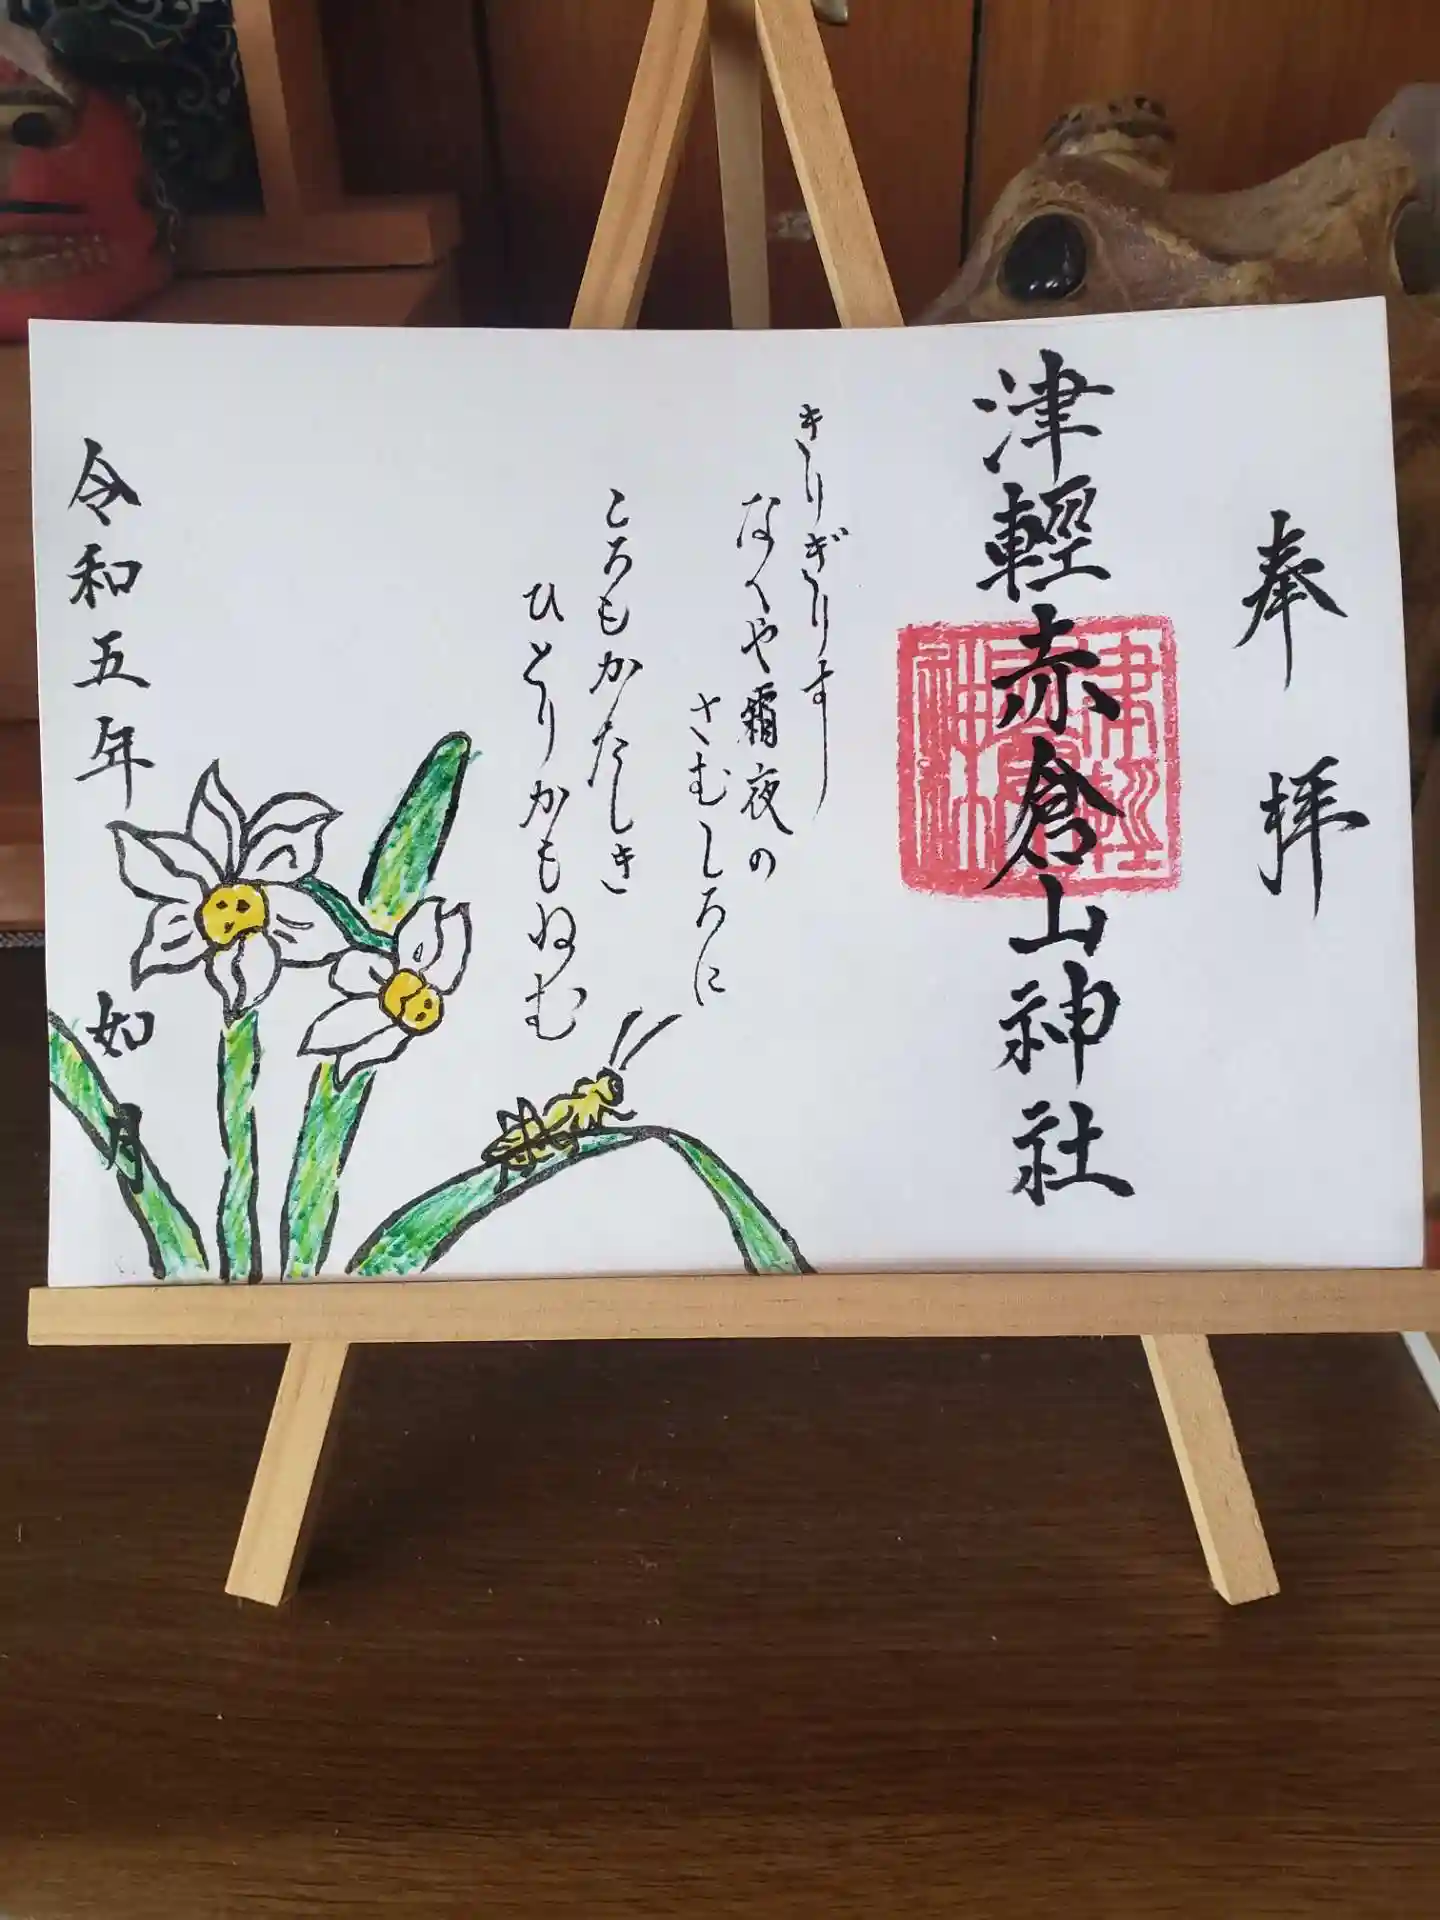 奉拝
津輕赤倉山神社
きりぎりす
なくや霜夜の
さむしろに
ころもかたしき
ひとりかもねむ
令和五年
如月